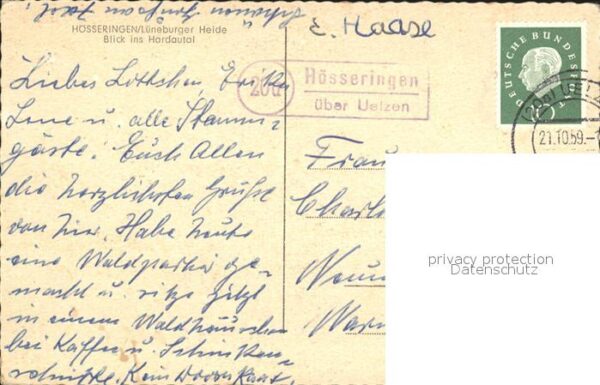 E. Haase
HÖSSERINGEN/Lüneburger Heide
Blick ins Hardautal
20a
Hösseringen
über Uelzen
DEUTSCHE BUNDESPOST
10
UELZ
21.10.59.-1
Liebes Lottchen, Erika
Lene u. alle Stamm-
gäste! Euch Allen
die herzlichsten Grüße
von hier. Habe heute
eine Waldpartie ge-
macht u. sitze jetzt
in einem Waldhäuschen
bei Kaffee u. Schinken-
Frau
Charl
privacy protection
Datenschutz